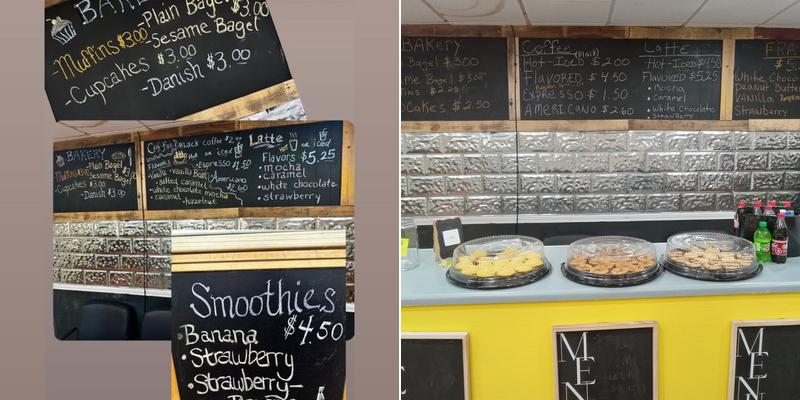 BAKE
-Plain Bagel $3.00
-Muffins $3.00 -Sesame Bagel
-Cupcakes $3.00
-Danish $3.00
BAKERY
-Plain Bagel
-Sesame Bagel
-Cupcakes $3.00
-Danish $3.00
Coffee black coffee $2
hot or iced
Flavors
-Espresso $1.50
-vanilla -Vanilla Bean
-Americano
$2.60
-salted caramel
-white chocolate mocha
-caramel -hazelnut
Latte
hot or iced
Flavors $5.25
-mocha
-caramel
-white chocolate
-strawberry
Smoothies
$4.50
Banana
•Strawberry
•Strawberry-
BAKERY
Bagel $3.00
me Bagel $3.00
ins $2.25
pcakes $2.50
Coffee (Black)
Hot-Iced $2.00
FLAVORED $4.50
EXPRESSO $1.50
AMERICANO $2.60
Latte
Hot-Iced $4.50
Flavored $5.25
• Mocha
• Caramel
• White Chocolate
• Strawberry
FRA
$5.
White Choco
Peanut Butte
Vanilla Pumpkin
Strawberry
MEN
MEN